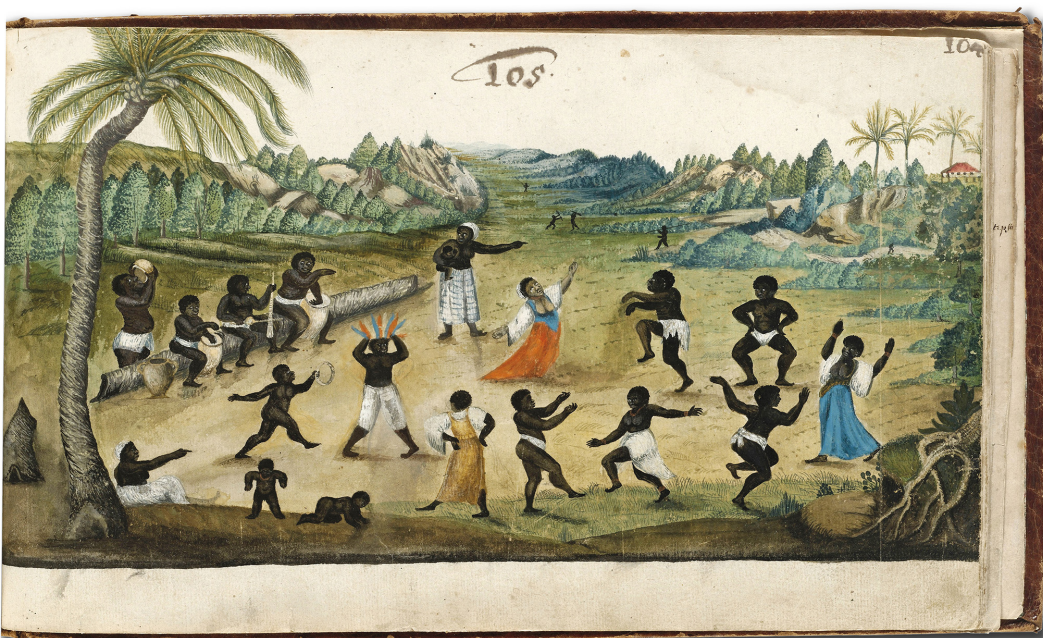 105.
104